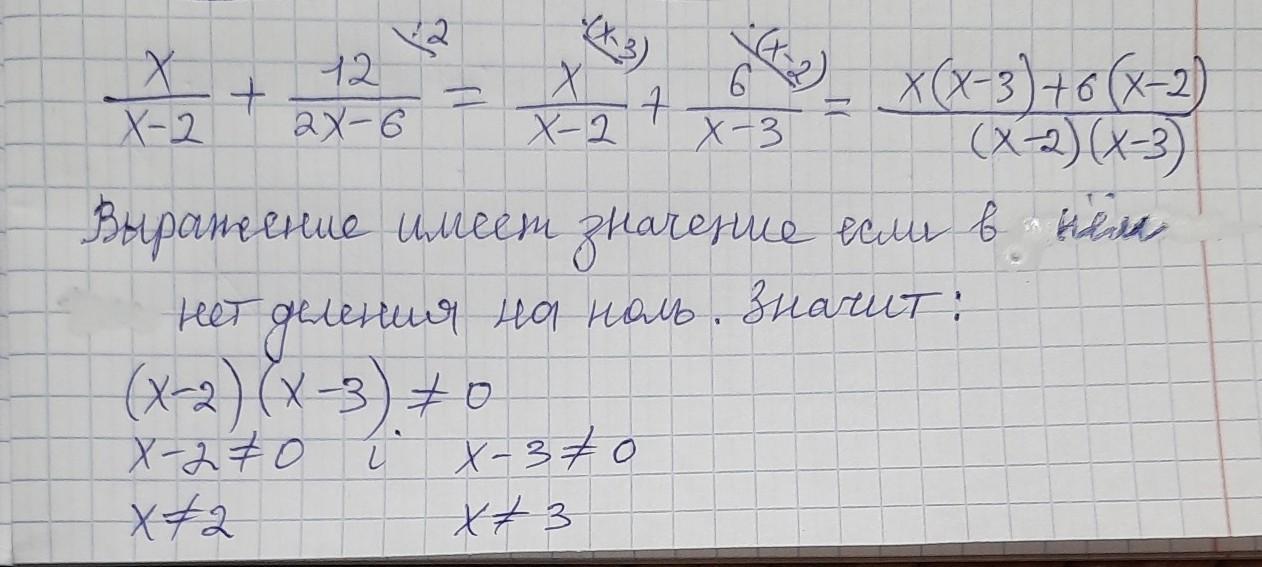 x/(x-2) + 12/(2x-6) \:2 = x/(x-2) \·(x-3) + 6/(x-3) \·(x-2) = (x(x-3)+6(x-2))/((x-2)(x-3))
Выражение имеет значение если в нём
нет деления на ноль. Значит:
(x-2)(x-3) ≠ 0
x-2≠0 і x-3≠0
x≠2 x≠3